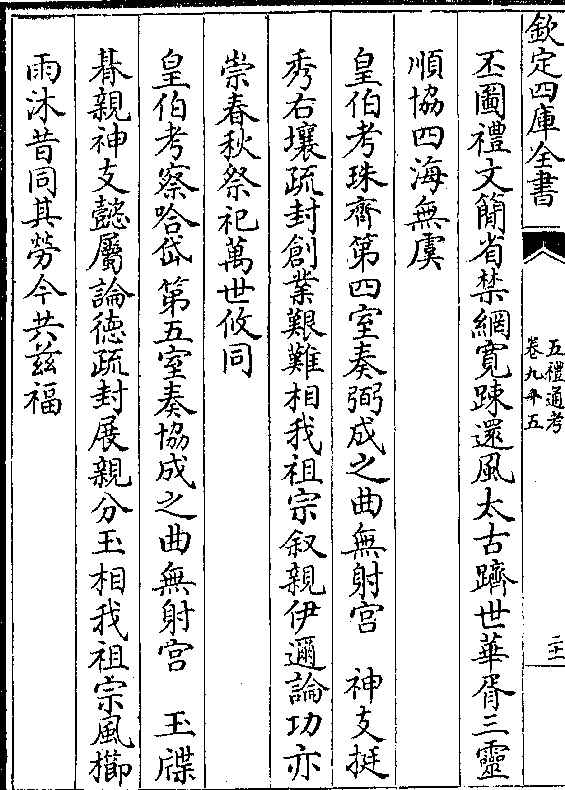 欽定四庫全書
五禮通考
卷九十五
二十一
丕圖禮文簡省禁網寛踈還風太古躋世華胥三靈
順協四海無虞
皇伯考珠齊第四室奏弼成之曲無射宫　神支挺
秀右壤疏封創業艱難相我祖宗叙親伊邇論功亦
崇春秋祭祀萬世攸同
皇伯考察哈岱第五室奏協成之曲無射宫　玉牒
朞親神支懿屬論德疏封展親分玉相我祖宗風櫛
雨沐昔同其勞今共兹福